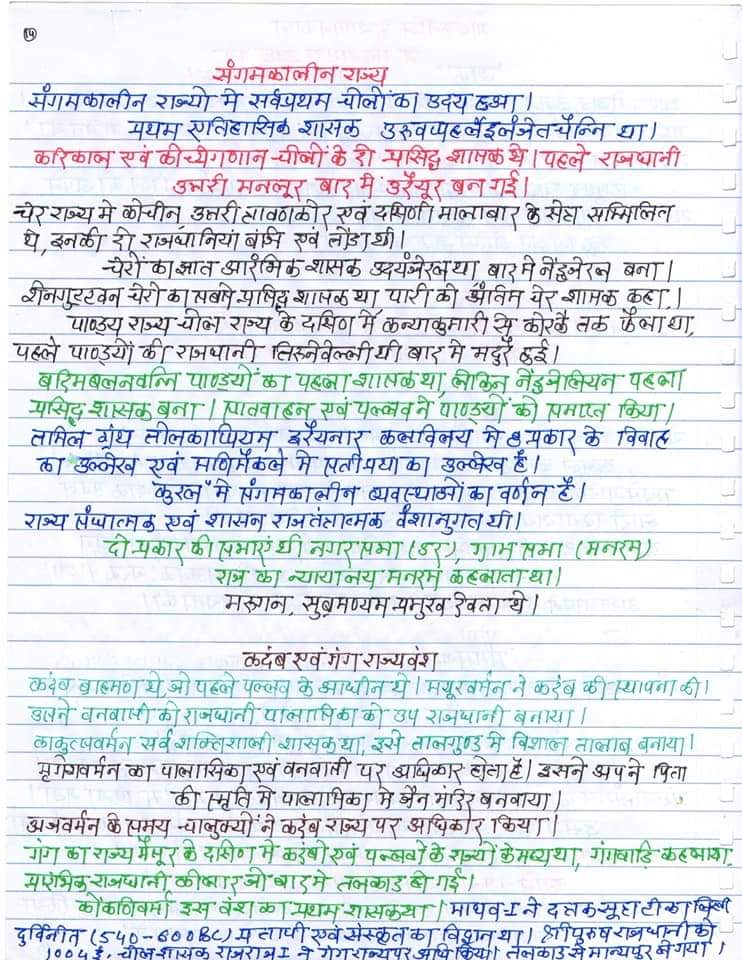 14
संगमकालीन राज्य
संगमकालीन राज्यो मे सर्वप्रथम चोलों का उदय हुआ।
प्रथम ऐतिहासिक शासक उरुवप्पहर्लेइलंजेतचैन्नि था।
करिकाल एवं कोच्चेगणान चोलों के दो प्रसिद्ध शासक थे। पहले राजधानी
उत्तरी मनलूर बाद में उरैयूर बन गई।
चेर राज्य मे कोचीन, उत्तरी त्रावणकोर एवं दक्षिणी मालाबार के क्षेत्र सम्मिलित
थे, इनकी दो राजधानियां बंजि एवं तोंडा थी।
चेरों का ज्ञात आरंभिक शासक उदयंजेरल था बाद मे नेंदुजेरल बना।
शेनगुट्टवन चेरो का सबसे प्रसिद्ध शासक था, पारी को अंतिम चेर शासक कहा।
पाण्ड्य राज्य चोल राज्य के दक्षिण में कन्याकुमारी से कोरकै तक फैला था,
पहले पाण्ड्यों की राजधानी तिरुनेवेल्ली थी बाद मे मदुरै हुई।
बदिमबलनवन्नि पाण्ड्यों का पहला शासक था, लेकिन नेंडुजेलियन पहला
प्रसिद्ध शासक बना। सातवाहन एवं पल्लव ने पाण्ड्यों को समाप्त किया।
तमिल ग्रंथ तोलकाप्पियम इरैयनार कलविलय मे 8 प्रकार के विवाह
का उल्लेख एवं मणिमैकले मे सतीप्रथा का उल्लेख है।
"कुरल" मे संगमकालीन व्यवस्थाओं का वर्णन है।
राज्य संघात्मक एवं शासन राजतंत्रात्मक वंशानुगत थी।
दो प्रकार की सभाएं थी नगर सभा (उर), ग्राम सभा (मनरम)
राजा का न्यायालय मनरम कहलाता था।
मरुगन, सुब्रमण्यम प्रमुख देवता थे।
कदंब एवं गंग राज्यवंश
कदंब ब्राहमण थे, जो पहले पल्लव के आधीन थे। मयूरवर्मन ने कदंब की स्थापना की।
उसने वनवासी को राजधानी पालासिका को उप राजधानी बनाया।
काकुत्सवर्मन सर्व शक्तिशाली शासक था, इसे तालगुण्ड मे विशाल तालाब बनाया।
मृगेशवर्मन का पालासिका एवं वनवासी पर अधिकार होता है। इसने अपने पिता
की स्मृति मे पालासिका मे जैन मंदिर बनवाया।
अजवर्मन के समय चालुक्यों ने कदंब राज्य पर अधिकार किया।
गंग का राज्य मैसूर के दक्षिण मे कदंबो एवं पल्लवों के राज्यों के मध्य था, गंगवाड़ि कहलाया
प्रारंभिक राजधानी कोलार जो बाद मे तलकाड हो गई।
कोंकणिवर्मा इस वंश का प्रथम शासक था। माधव-I ने दत्तक सूत्र टीका लिखी
दुर्विनीत (540-600BC) प्रतापी एवं संस्कृत का विद्वान था। श्रीपुरुष राजधानी को
1004 ई. चोल शासक राजराज I ने गंग राज्य पर अधि किया। तलकाड से मान्यपुर ले गया।